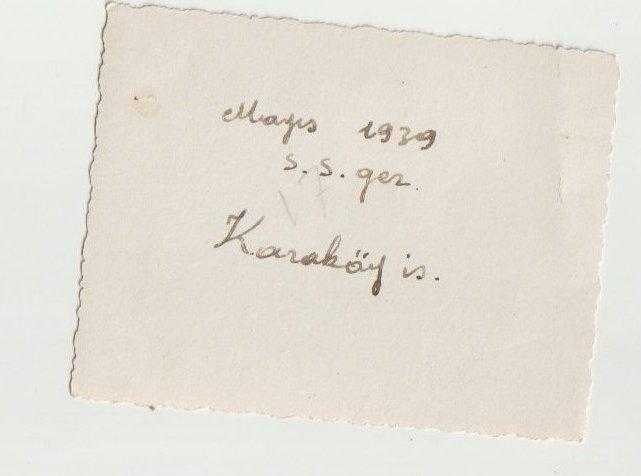 Mayıs 1939
S. S. gez.
Karaköy is.